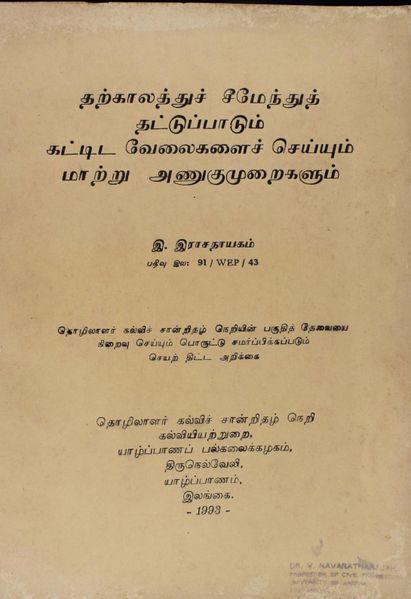 தற்காலத்துச் சீமேந்துத்
தட்டுப்பாடும்
கட்டிட வேலைகளைச் செய்யும்
மாற்று அணுகுமுறைகளும்
இ. இராசநாயகம்
பதிவு இல: 91 / WEP / 43
தொழிலாளர் கல்விச் சான்றிதழ் நெறியின் பகுதித் தேவையை
நிறைவு செய்யும் பொருட்டு சமர்ப்பிக்கப்படும்
செயற் திட்ட அறிக்கை
தொழிலாளர் கல்விச் சான்றிதழ் நெறி
கல்வியியற்றுறை,
யாழ்ப்பாணப் பல்கலைக்கழகம்,
திருநெல்வேலி,
யாழ்ப்பாணம்,
இலங்கை.
- 1993 -
DR. V. NAVARATNARAJAH
PROFESSOR OF CIVIL
UNIVERSITY OF JAFFNA